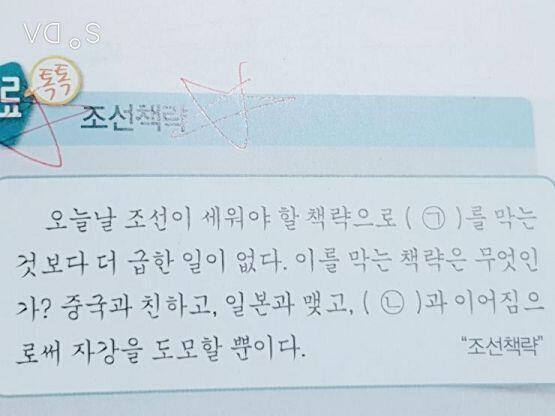 료 톡톡
조선책략
오늘날 조선이 세워야 할 책략으로 ( ㉠ )를 막는
것보다 더 급한 일이 없다. 이를 막는 책략은 무엇인
가? 중국과 친하고, 일본과 맺고, ( ㉡ )과 이어짐으
로써 자강을 도모할 뿐이다.
“조선책략”